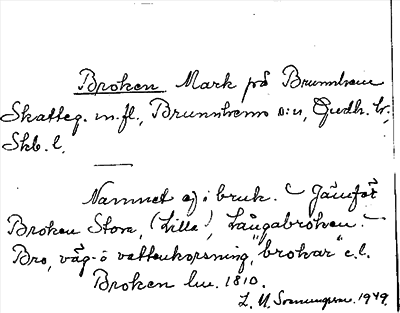 Broken Mark på Brunnhem
Skatteg. m.fl., Brunnhems s:n, Gudh. hr,
Skb. l.
Namnet ej i bruk. – Jämför
Broken Stora, (Lilla), Långabroken. –
Bro, väg- o vattenkorsning, "brokar" e.l.
Broken lm. 1810.
1949.